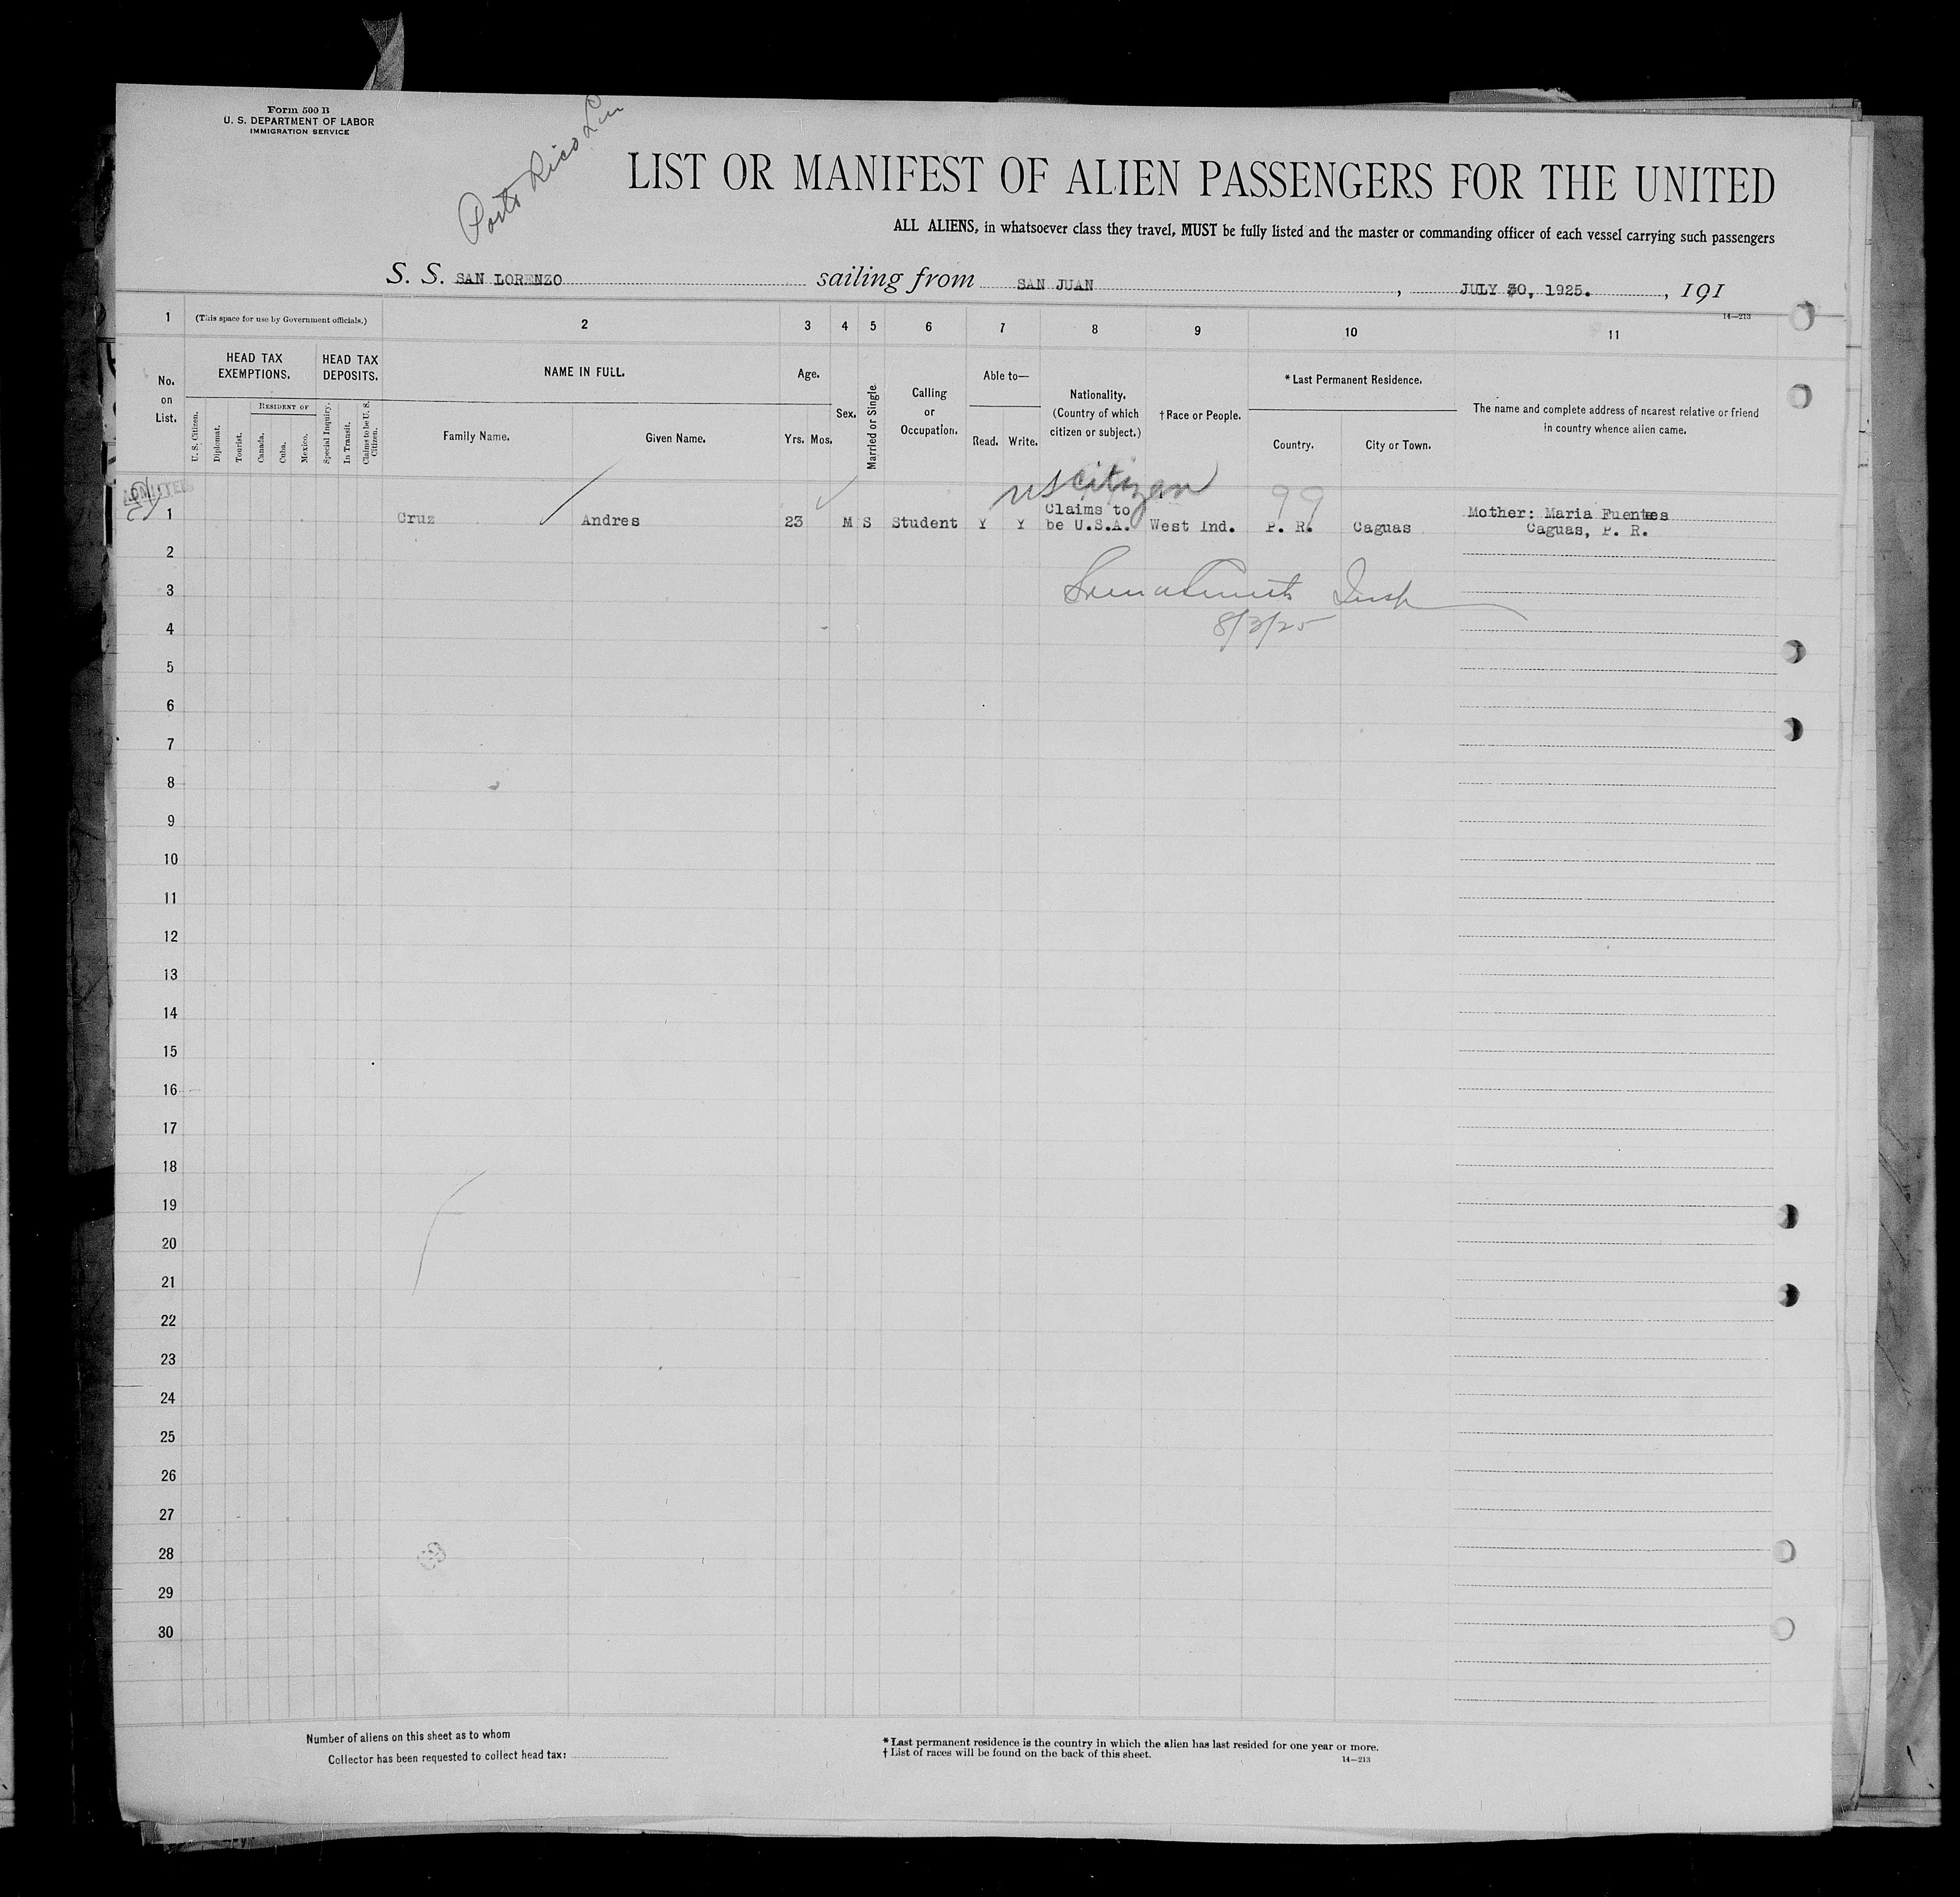 Form 500 B
U. S. DEPARTMENT OF LABOR
IMMIGRATION SERVICE
Porto Rico
LIST OR MANIFEST OF ALIEN PASSENGERS FOR THE UNITED
ALL ALIENS, in whatsoever class they travel, MUST be fully listed and the master or commanding officer of each vessel carrying such passengers
S. S. SAN LORENZO sailing from SAN JUAN, JULY 30, 1925., 191
14—213
1 (This space for use by Government officials.) 2 3 4 5 6 7 8 9 10 11
No. on List.
HEAD TAX EXEMPTIONS.
HEAD TAX DEPOSITS.
U. S. Citizen.
Diplomat.
Tourist.
RESIDENT OF
Canada.
Cuba.
Mexico.
Special Inquiry.
In Transit.
Claims to be U. S. Citizen.
NAME IN FULL.
Family Name.
Given Name.
Age.
Yrs. Mos.
Sex.
Married or Single
Calling or Occupation.
Able to—
Read. Write.
Nationality.
(Country of which citizen or subject.)
†Race or People.
* Last Permanent Residence.
Country.
City or Town.
The name and complete address of nearest relative or friend
in country whence alien came.
ADMITTED
US citizen
99
1 Cruz Andres 23 M S Student Y Y Claims to be U.S.A. West Ind. P. R. Caguas Mother: Maria Fuentes
Caguas, P. R.
2
3
Insp
4
8/3/25
5
6
7
8
9
10
11
12
13
14
15
16
17
18
19
20
21
22
23
24
25
26
27
28
29
30
Number of aliens on this sheet as to whom
Collector has been requested to collect head tax:
* Last permanent residence is the country in which the alien has last resided for one year or more.
† List of races will be found on the back of this sheet.
14—213